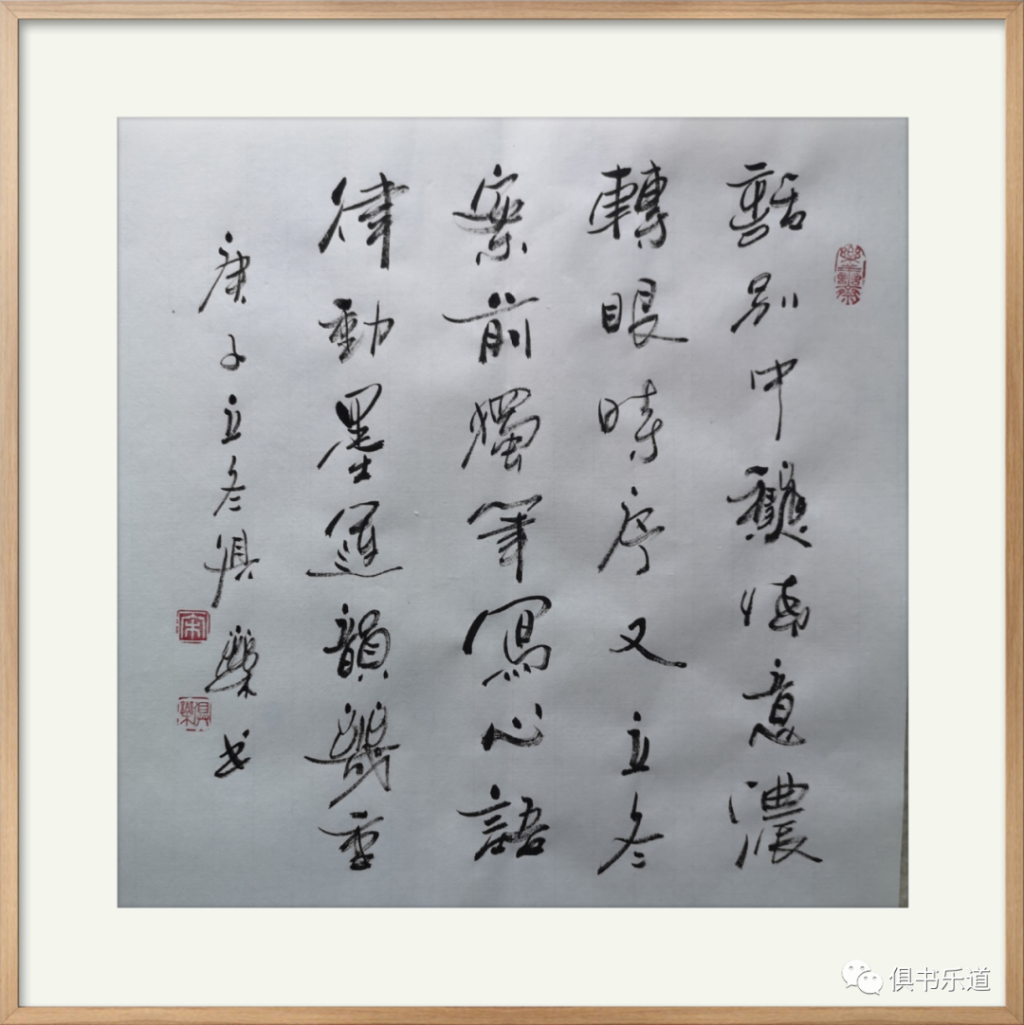 話别中龝情意濃
轉眼時序又立冬
案前獨筆寫心語
律動墨運韻幾重
庚子立冬俱樂书
宋
俱樂
俱书乐道